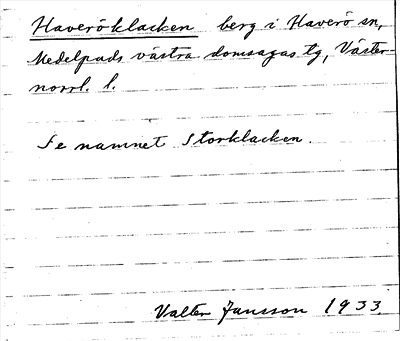 Haveröklacken berg i Haverö sn,
Medelpads västra domsagas tg, Väster-
norrl. l.
Se namnet Storklacken.
Valter Jansson 1933.